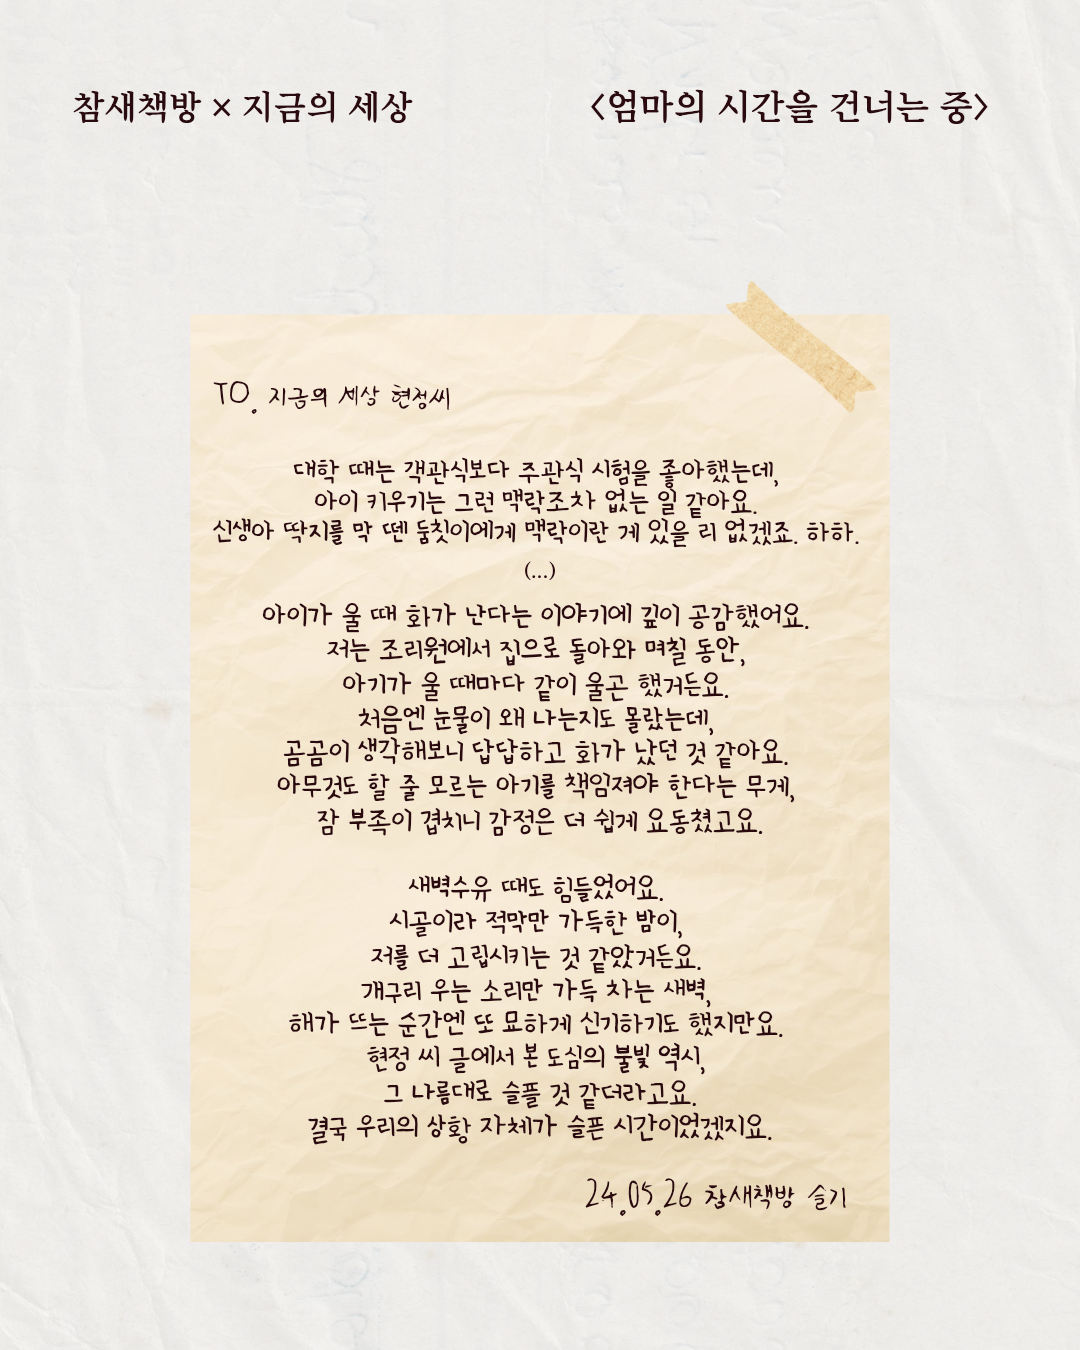 참새책방 × 지금의 세상
<엄마의 시간을 건너는 중>
TO. 지금의 세상 현정씨
대학 때는 객관식보다 주관식 시험을 좋아했는데,
아이 키우기는 그런 맥락조차 없는 일 같아요.
신생아 딱지를 막 뗀 둠칫이에게 맥락이란 게 있을 리 없겠죠. 하하.
(...)
아이가 울 때 화가 난다는 이야기에 깊이 공감했어요.
저는 조리원에서 집으로 돌아와 며칠 동안,
아기가 울 때마다 같이 울곤 했거든요.
처음엔 눈물이 왜 나는지도 몰랐는데,
곰곰이 생각해보니 답답하고 화가 났던 것 같아요.
아무것도 할 줄 모르는 아기를 책임져야 한다는 무게,
잠 부족이 겹치니 감정은 더 쉽게 요동쳤고요.
새벽수유 때도 힘들었어요.
시골이라 적막만 가득한 밤이,
저를 더 고립시키는 것 같았거든요.
개구리 우는 소리만 가득 차는 새벽,
해가 뜨는 순간엔 또 묘하게 신기하기도 했지만요.
현정 씨 글에서 본 도심의 불빛 역시,
그 나름대로 슬플 것 같더라고요.
결국 우리의 상황 자체가 슬픈 시간이었겠지요.
24.05.26 참새책방 슬기